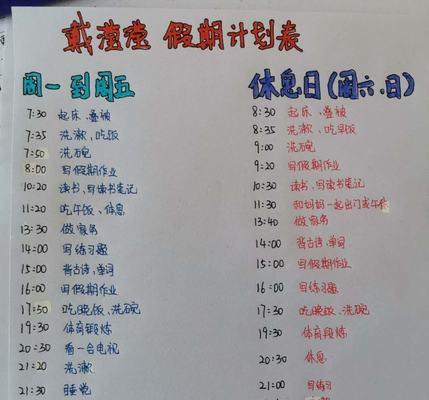 戴滢滢 假期计划表
周一到周五
7:30 起床、叠被
7:35 洗漱、吃饭
7:50 洗碗
8:00 写假期作业
10:20 读书、写读书笔记
11:20 吃午饭、休息
13:30 做家务
14:00 写练习题
15:00 背古诗、单词
16:00 写假期作业
17:50 吃晚饭、洗碗
19:30 体育锻炼
20:30 看一会电视
21:20 洗漱
21:30 睡觉
休息日(周六、日)
8:30 起床、叠被
8:35 洗漱、吃早饭
9:00 洗碗
9:20 写假期作业
10:30 读书、写读书笔记
11:30 和妈妈一起出门或午休
13:40 做家务
14:00 背古诗、单词
15:00 写假期作业
16:00 写练习题
17:30 吃晚饭、洗碗
19:30 体育锻炼
20:30 休息
21:00 写练习